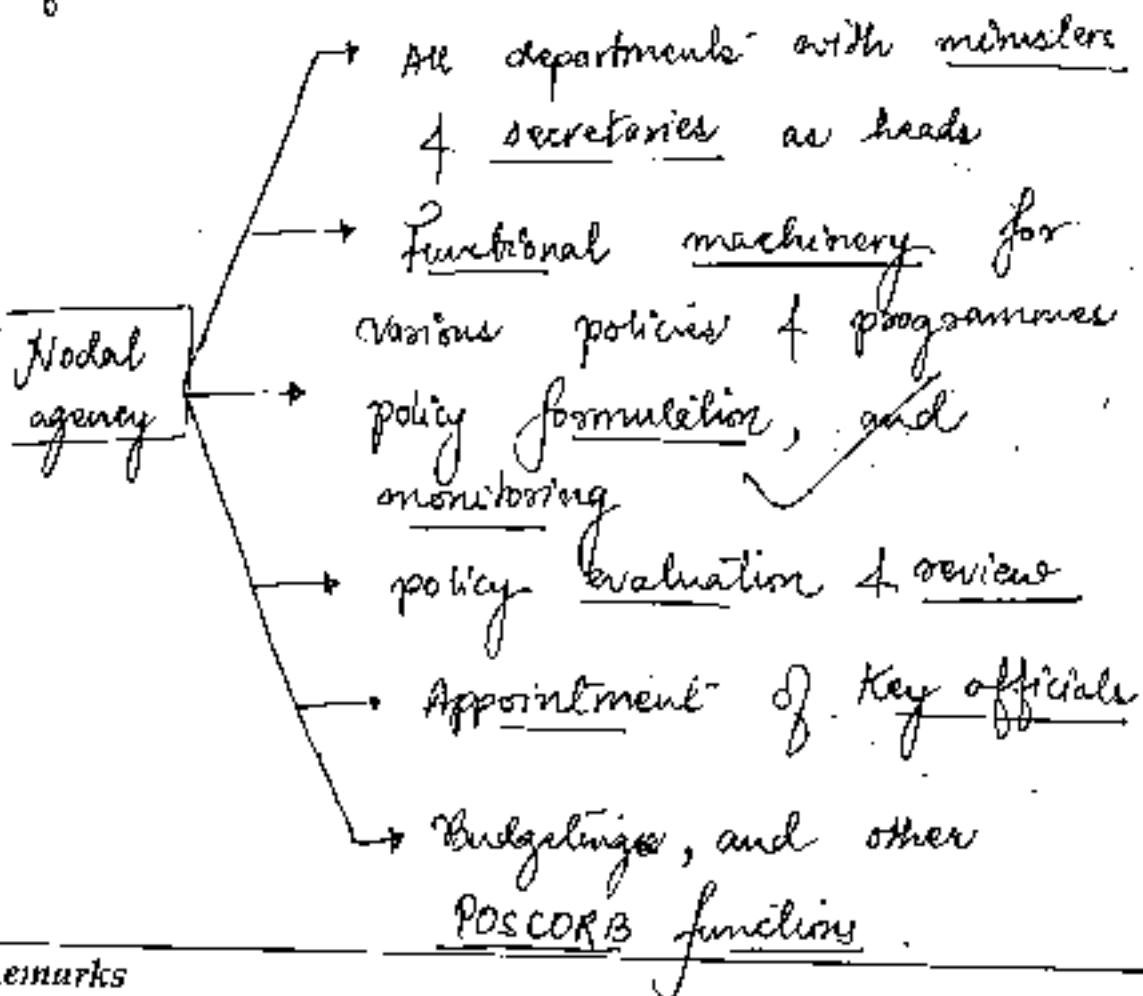 All departments with ministers
& secretaries as heads
Functional machinery for
various policies & programmes
Nodal
agency
policy formulation, and
monitoring
policy evaluation & review
Appointment of Key officials
Budgeting, and other
POSCORB functions
emarks